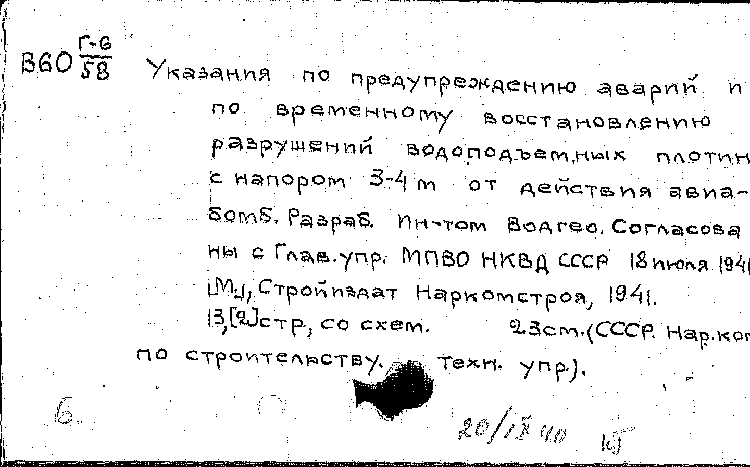 Г-6
В60 58
Указания по предупреждению аварий и
по временному восстановлению
разрушений водоподъемных плотин
с напором 3-4 м от действия авиа-
бомб. Разраб. Ин-том Водгео. Согласова
ны с Глав. упр. МПВО НКВД СССР 18 июля 1941
[М.], Стройиздат Наркомстроя, 1941.
13,[2] стр, со схем. 23см. (СССР. Нар. ком
по строительству. Техн. упр.).
6.
20/IX 40